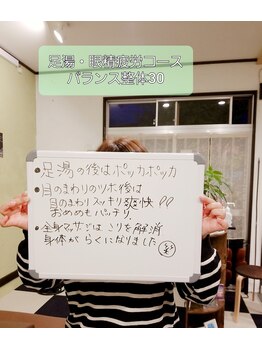 足湯・眼精疲労コース
バランス整体30
•足湯の後はポッカポッカ
•目のまわりのツボ後は
目のまわりスッキリ爽快!!
おめめもパッチリ、
•全身マッサではこりを解消
身体がらくになりました